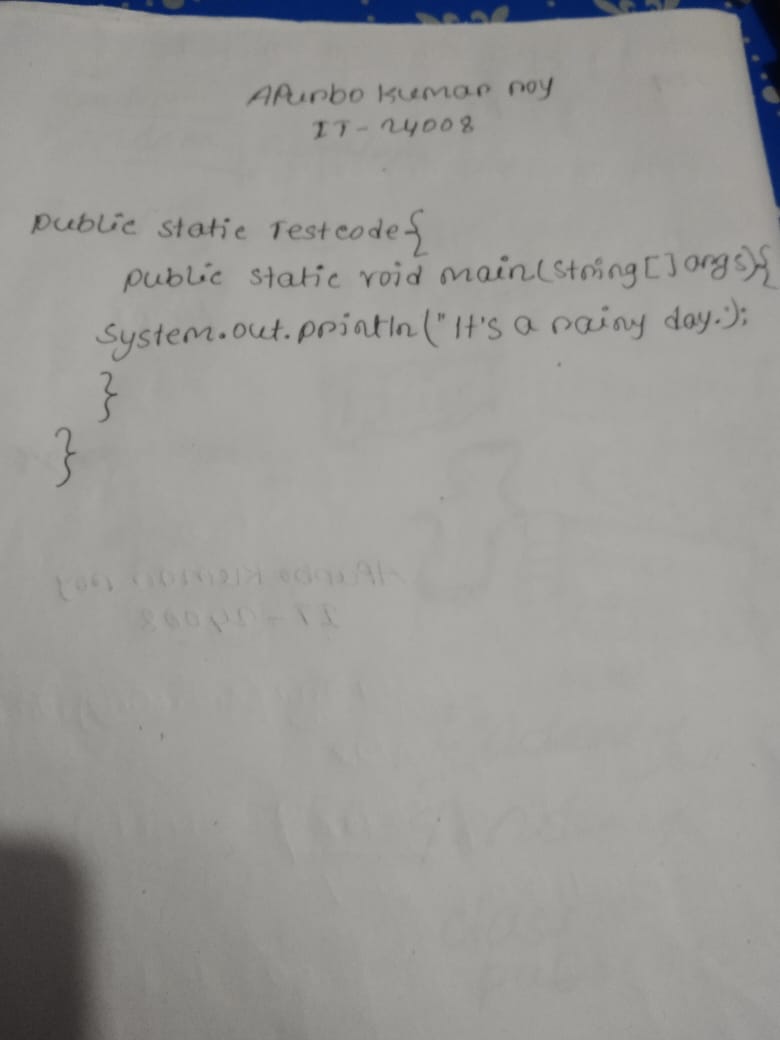 APurbo kumar roy
IT-24008
public static Testcode{
public static void main(string[]args){
system.out.println("It's a rainy day.");
}
}